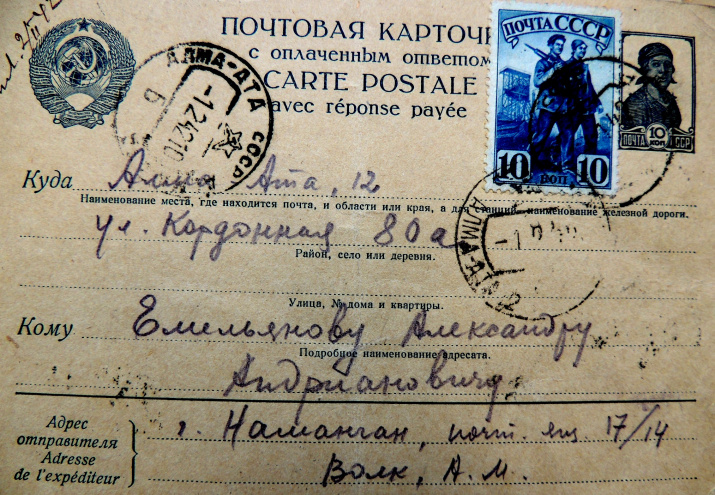 ПОЧТОВАЯ КАРТОЧК
с оплаченным ответом
CARTE POSTALE
avec réponse payée
АЛМА-АТА СССР
-1242 10
ПОЧТА СССР
10 КОП 10
10 КОП
ПОЧТА СССР
Куда Алма Ата, 12
Наименование места, где находится почта, и области или края, а для станций, наименование железной дороги.
ул. Кордонная 80а
АЛМА-АТА 12
Район, село или деревня.
Улица, № дома и квартиры.
Кому Емельянову Александру
Подробное наименование адресата.
Андриановичу
Адрес отправителя
Adresse de l'expéditeur
г. Наманган, почт. ящ. 17/14
Волк, А. М.